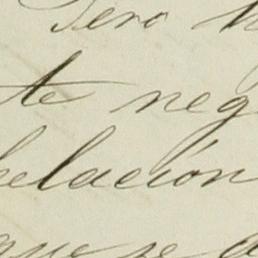 Pero
te neg
elacion
que se